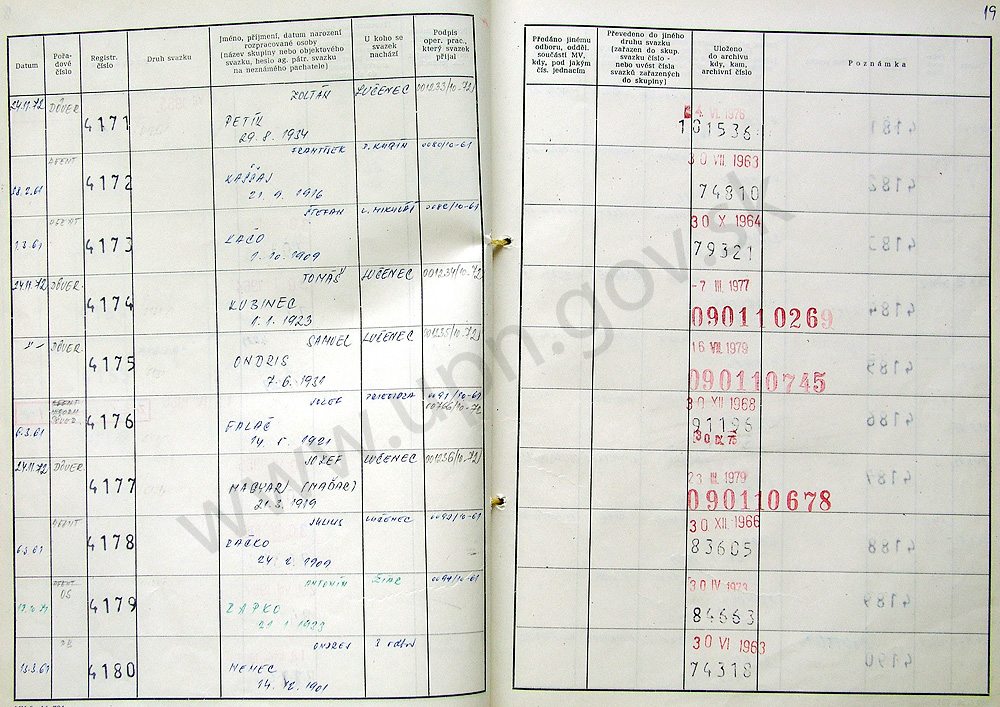 19
Datum
Pořadové číslo
Registr. číslo
Druh svazku
Jméno, příjmení, datum narození
rozpracované osoby
(název skupiny nebo objektového
svazku, heslo ag. pátr. svazku
na neznámého pachatele)
U koho se
svazek
nachází
Podpis
oper. prac.,
který svazek
přijal
Předáno jinému
odboru, odděl.
součásti MV,
kdy, pod jakým
čís. jednacím
Převedeno do jiného
druhu svazku
(zařazen do skup.
svazku číslo -
nebo uvést čísla
svazků zařazených
do skupiny)
Uloženo
do archivu
kdy, kam,
archivní číslo
Poznámka
24.11.72 DÔVER. 4171 ZOLTÁN LUČENEC 001233/10-72
PETÍK
29.8.1934
VI. 1976
101536
AGENT 4172 FRANTIŠEK 0080/10-61
21.9.1916
30 VII. 1963
74810
1.3.61 AGENT 4173 ŠTEFAN L. MIKULÁŠ 0082/10-61
KAČO
1.10.1909
30 X 1964
79321
24.11.72 DÔVER. 4174 TOMÁŠ LUČENEC 001234/10-72
KUBINEC
1.1.1923
-7 III. 1977
090110269
-"- DÔVER. 4175 SAMUEL LUČENEC 001235/10-72
ONDRIS
7.6.1931
16 VII. 1979
090110745
6.3.61 4176 JOZEF PRIEVIDZA 0091/10-61
00766/10-72
FALÁČ
1921
30 XII 1968
91196
24.11.72 DÔVER. 4177 JOZEF LUČENEC 001236/10-72
MAGYARI (MAĎAR)
21.3.1919
23 III. 1979
090110678
6.3.61 AGENT 4178 JÚLIUS LUČENEC 0093/10-61
1909
30 XII. 1966
83605
AGENT
OS
4179 ANTONÍN ŽIAR 0094/10-61
ZAPKO
21.1.1923
30 IV 1973
84663
13.3.61 4180 ONDREJ 3 odbor
NEMEC
14.12.1901
30 VI 1963
74318
www.upn.gov.sk